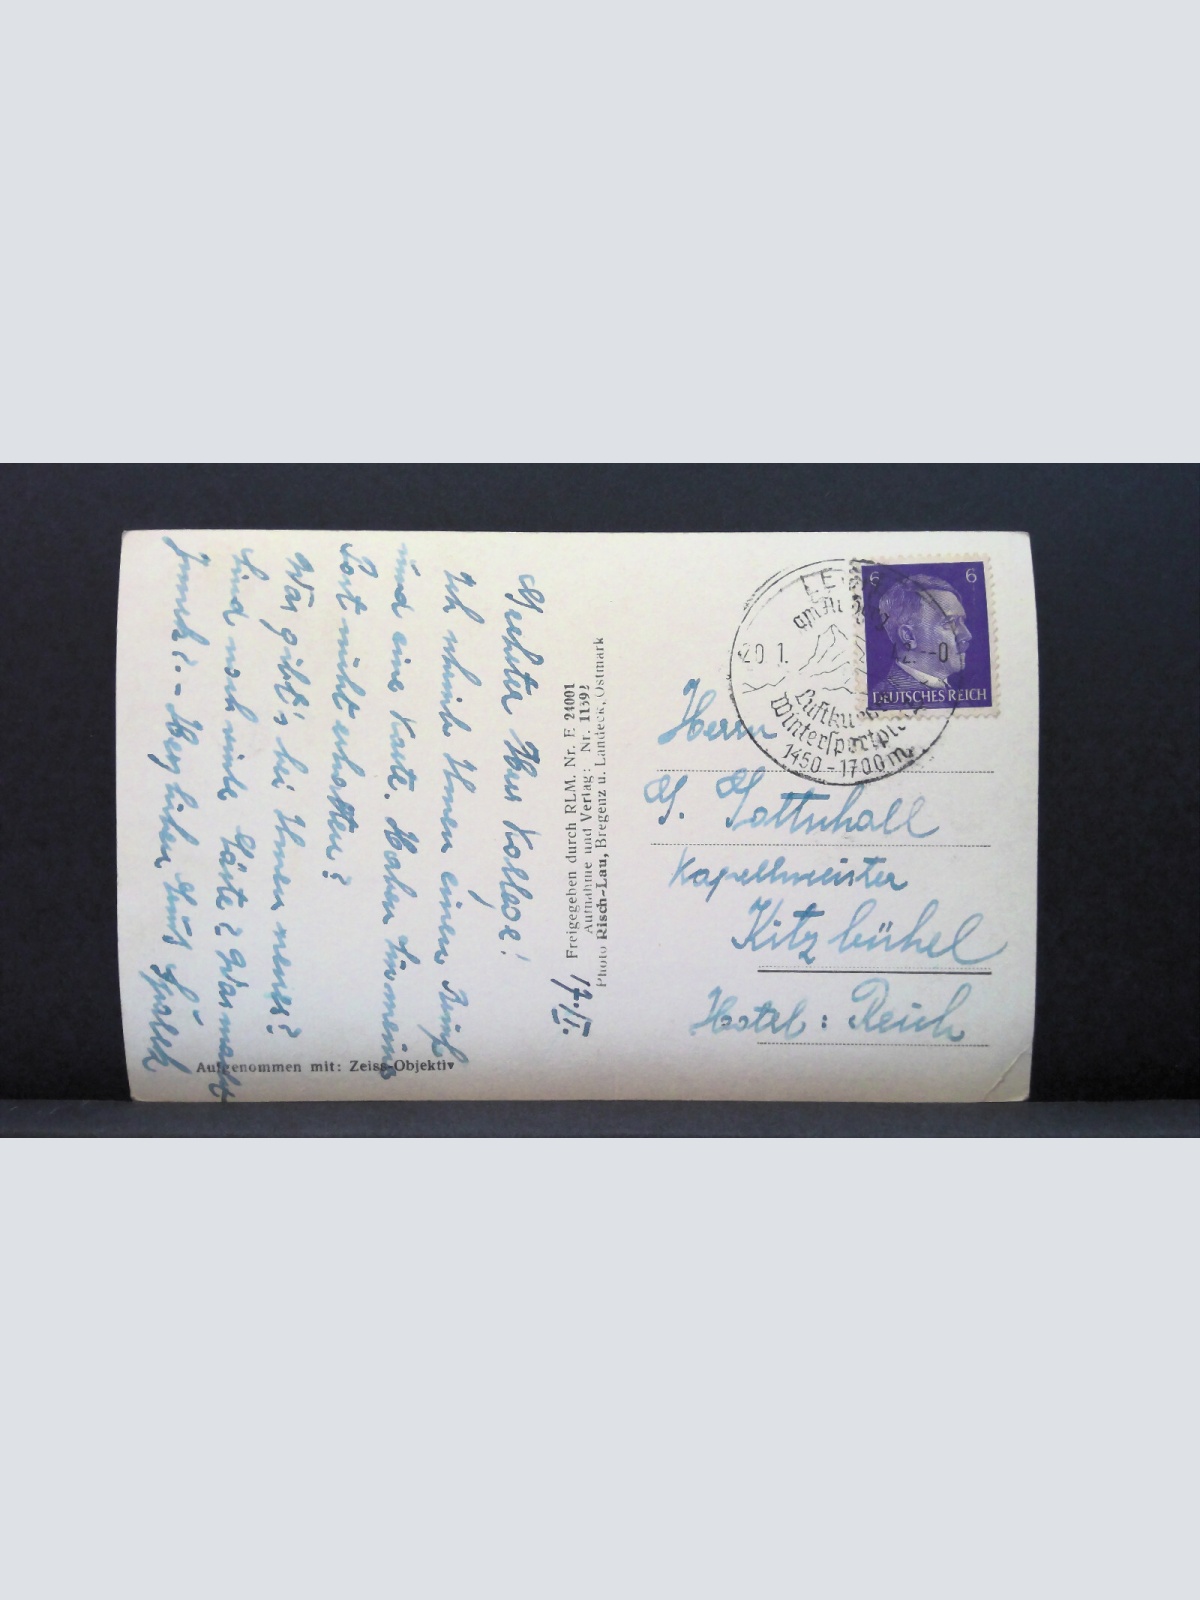 Geehrter Herr Kollege!
Ich schrieb Ihnen einen Brief
und eine Karte. Haben Sie meine
Post nicht erhalten?
Was gibt's bei Ihnen neues?
Sind noch viele Gäste? Was macht
Herzlichen Gruß
Aufgenommen mit: Zeiss-Objektiv
17./I.
Freigegeben durch RLM. Nr. E 24001
Aufnahme und Verlag: Nr. 11392
Photo Risch-Lau, Bregenz u. Landeck, Ostmark
6 6
DEUTSCHES REICH
20.1. 42.--0
Luftku
Wintersportpl
1450-1700m
Herrn
G. Gottschall
Kapellmeister
Kitzbühel
Hotel: Reich